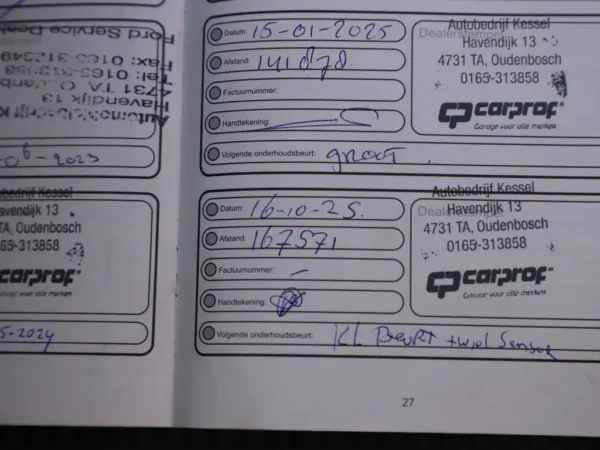 Datum: 15-01-2025
Afstand: 141878.
Factuurnummer:
Handtekening:
Volgende onderhoudsbeurt: groot.
Autobedrijf Kessel
Dealerstempel
Havendijk 13
4731 TA, Oudenbosch
0165-313858
CP carprof
Garage voor alle merken
Datum: 16-10-25.
Afstand: 167571
Factuurnummer: -
Handtekening:
Volgende onderhoudsbeurt: KL BEURT + wiel Sensor
Autobedrijf Kessel
Dealerstempel
Havendijk 13
4731 TA, Oudenbosch
0165-313858
CP carprof
Garage voor alle merken
Ford Service Deal
Fax: 0165-312349
Tel: 0165-313858
4731 TA O
Havendijk 13
06-2023
obedrijf Kessel
avendijk 13
TA, Oudenbosch
65-313858
carprof
voor alle merken
5-2024
27